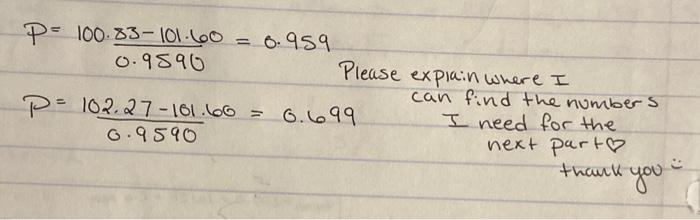 P= 100.83-101.60 = 0.959
0.9590
Please explain where I
can find the numbers
P= 102.27-101.60 = 0.699
I need for the
0.9590
next part♡
thank you :)